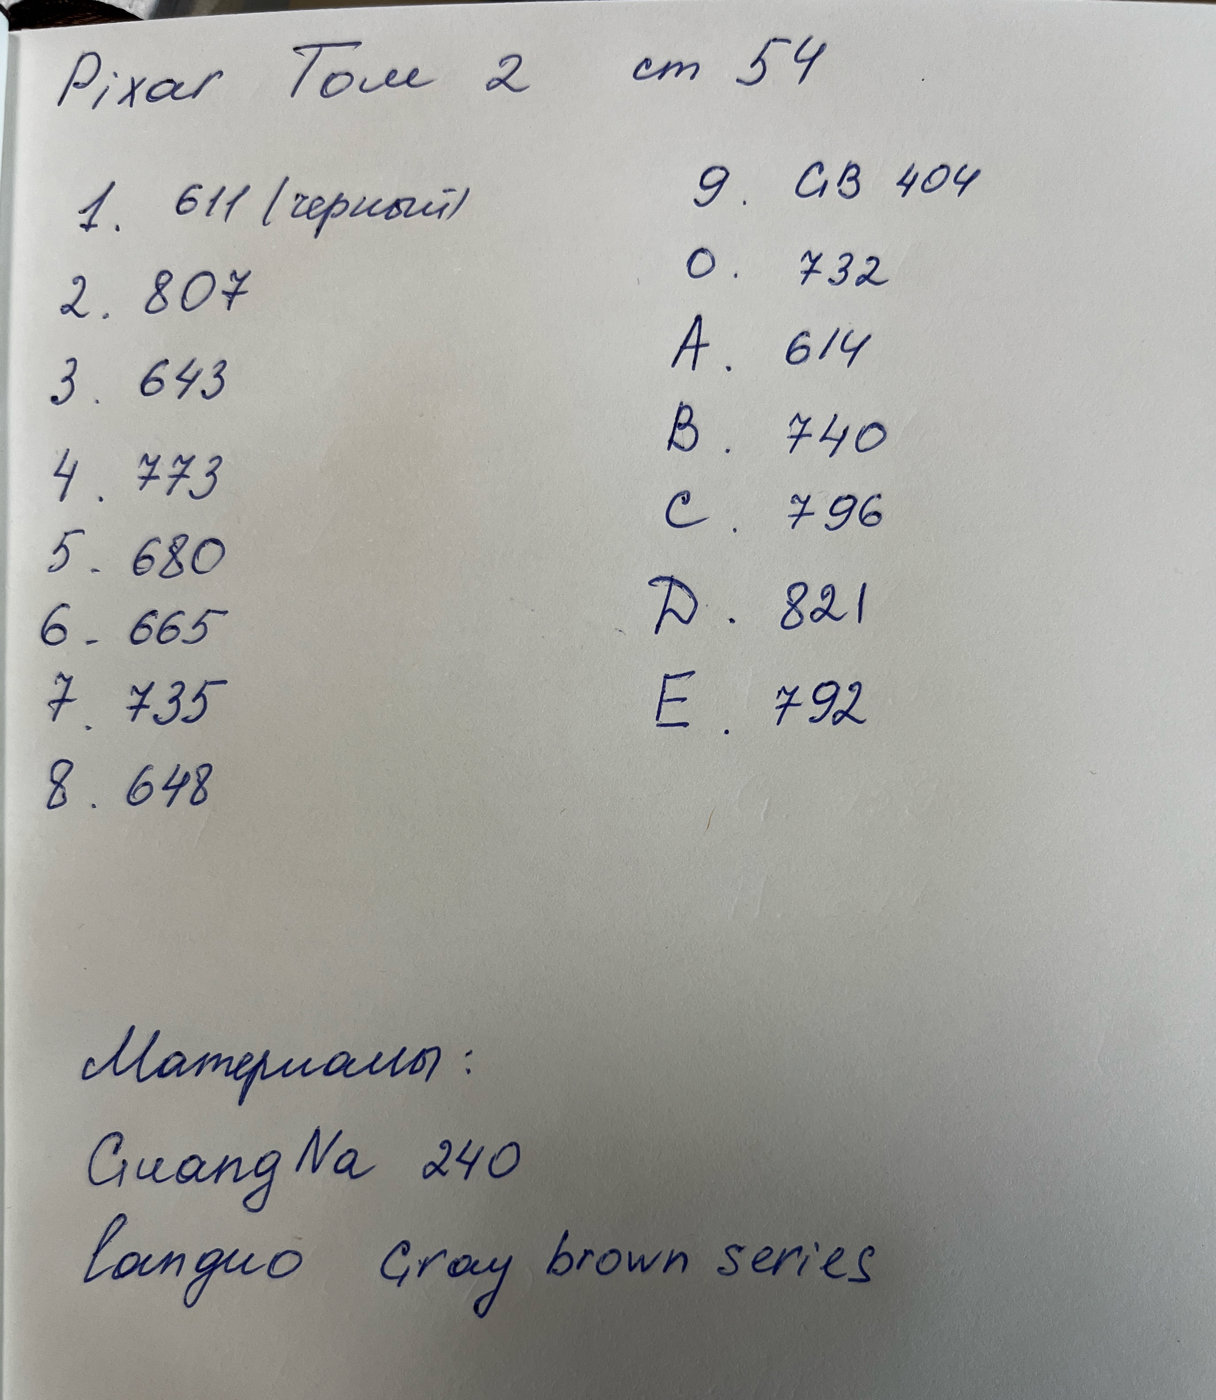 Pixar Том 2 ст 54
1. 611 (черный)
2. 807
3. 643
4. 773
5. 680
6. 665
7. 735
8. 648
9. GB 404
0. 732
A. 614
B. 740
C. 796
D. 821
E. 792
Материалы:
GuangNa 240
languo Gray brown series